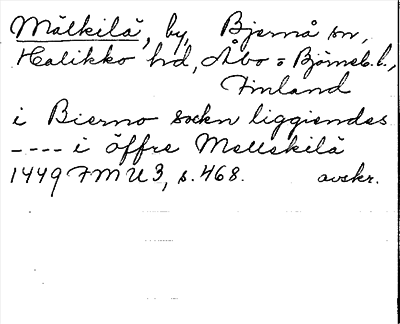 Mälkilä, by, Bjernå sn,
Halikko hd, Åbo = Björneb. l.,
Finland
i Bierno sockn liggiendes
---- i öffre Mellskilä
1449 FMU 3, s. 468. avskr.